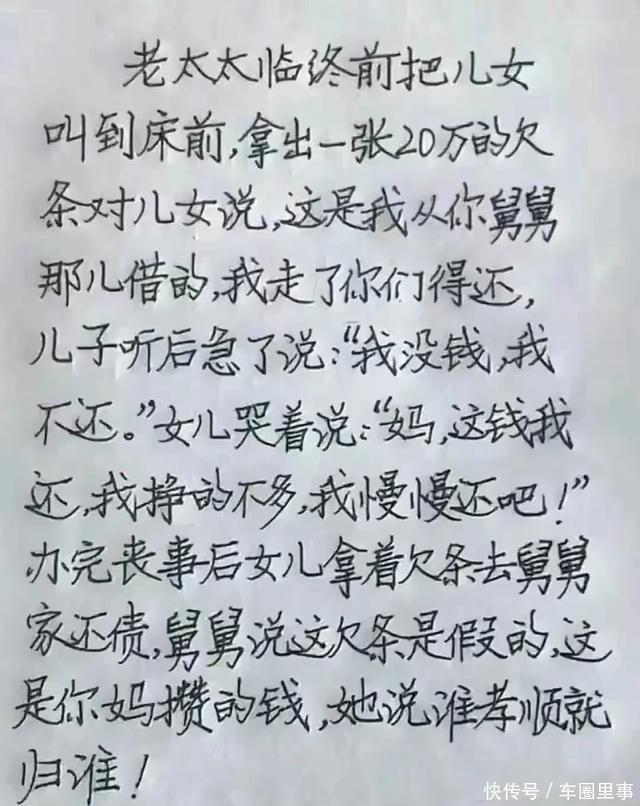 老太太临终前把儿女
叫到床前,拿出一张20万的欠
条对儿女说,这是我从你舅舅
那儿借的,我走了你们得还,
儿子听后急了说:“我没钱,我
不还。”女儿哭着说:“妈,这钱我
还,我挣的不多,我慢慢还吧!”
办完丧事后女儿拿着欠条去舅舅
家还债,舅舅说这欠条是假的,这
是你妈攒的钱,她说谁孝顺就
归谁!
快传号/车圈里事